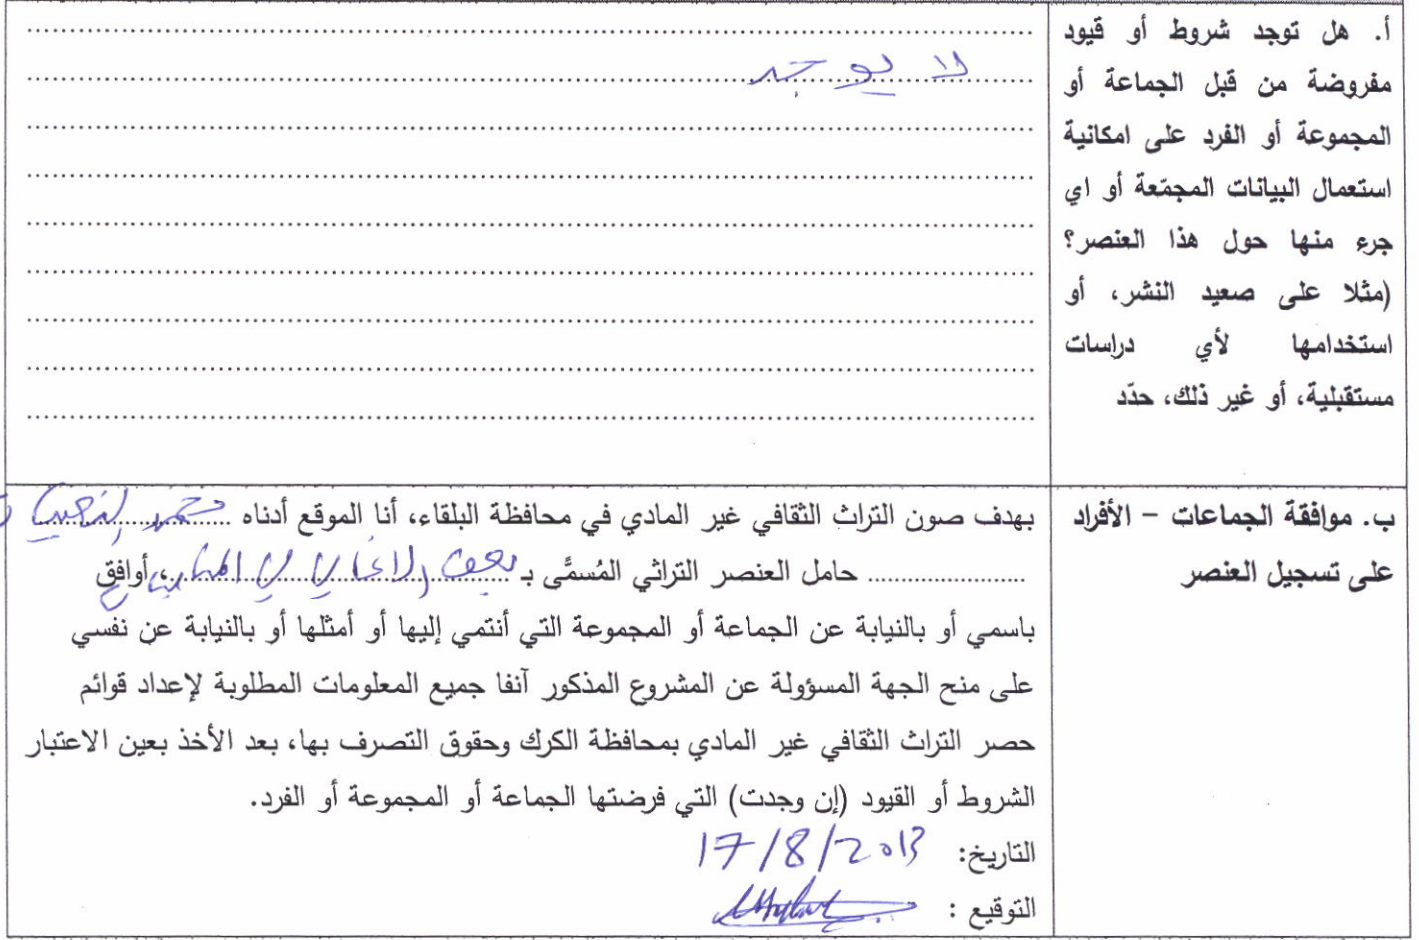 أ. هل توجد شروط أو قيود
مفروضة من قبل الجماعة أو
المجموعة أو الفرد على امكانية
استعمال البيانات المجمّعة أو اي
جرء منها حول هذا العنصر؟
(مثلا على صعيد النشر، أو
استخدامها لأي دراسات
مستقبلية، أو غير ذلك، حدّد
لا يوجد
ب. موافقة الجماعات – الأفراد
على تسجيل العنصر
بهدف صون التراث الثقافي غير المادي في محافظة البلقاء، أنا الموقع أدناه محمد
حامل العنصر التراثي المُسمَّى بـ بعض الاغاني في، أوافق
باسمي أو بالنيابة عن الجماعة أو المجموعة التي أنتمي إليها أو أمثلها أو بالنيابة عن نفسي
على منح الجهة المسؤولة عن المشروع المذكور آنفا جميع المعلومات المطلوبة لإعداد قوائم
حصر التراث الثقافي غير المادي بمحافظة الكرك وحقوق التصرف بها، بعد الأخذ بعين الاعتبار
الشروط أو القيود (إن وجدت) التي فرضتها الجماعة أو المجموعة أو الفرد.
التاريخ: 17/8/2013
التوقيع :